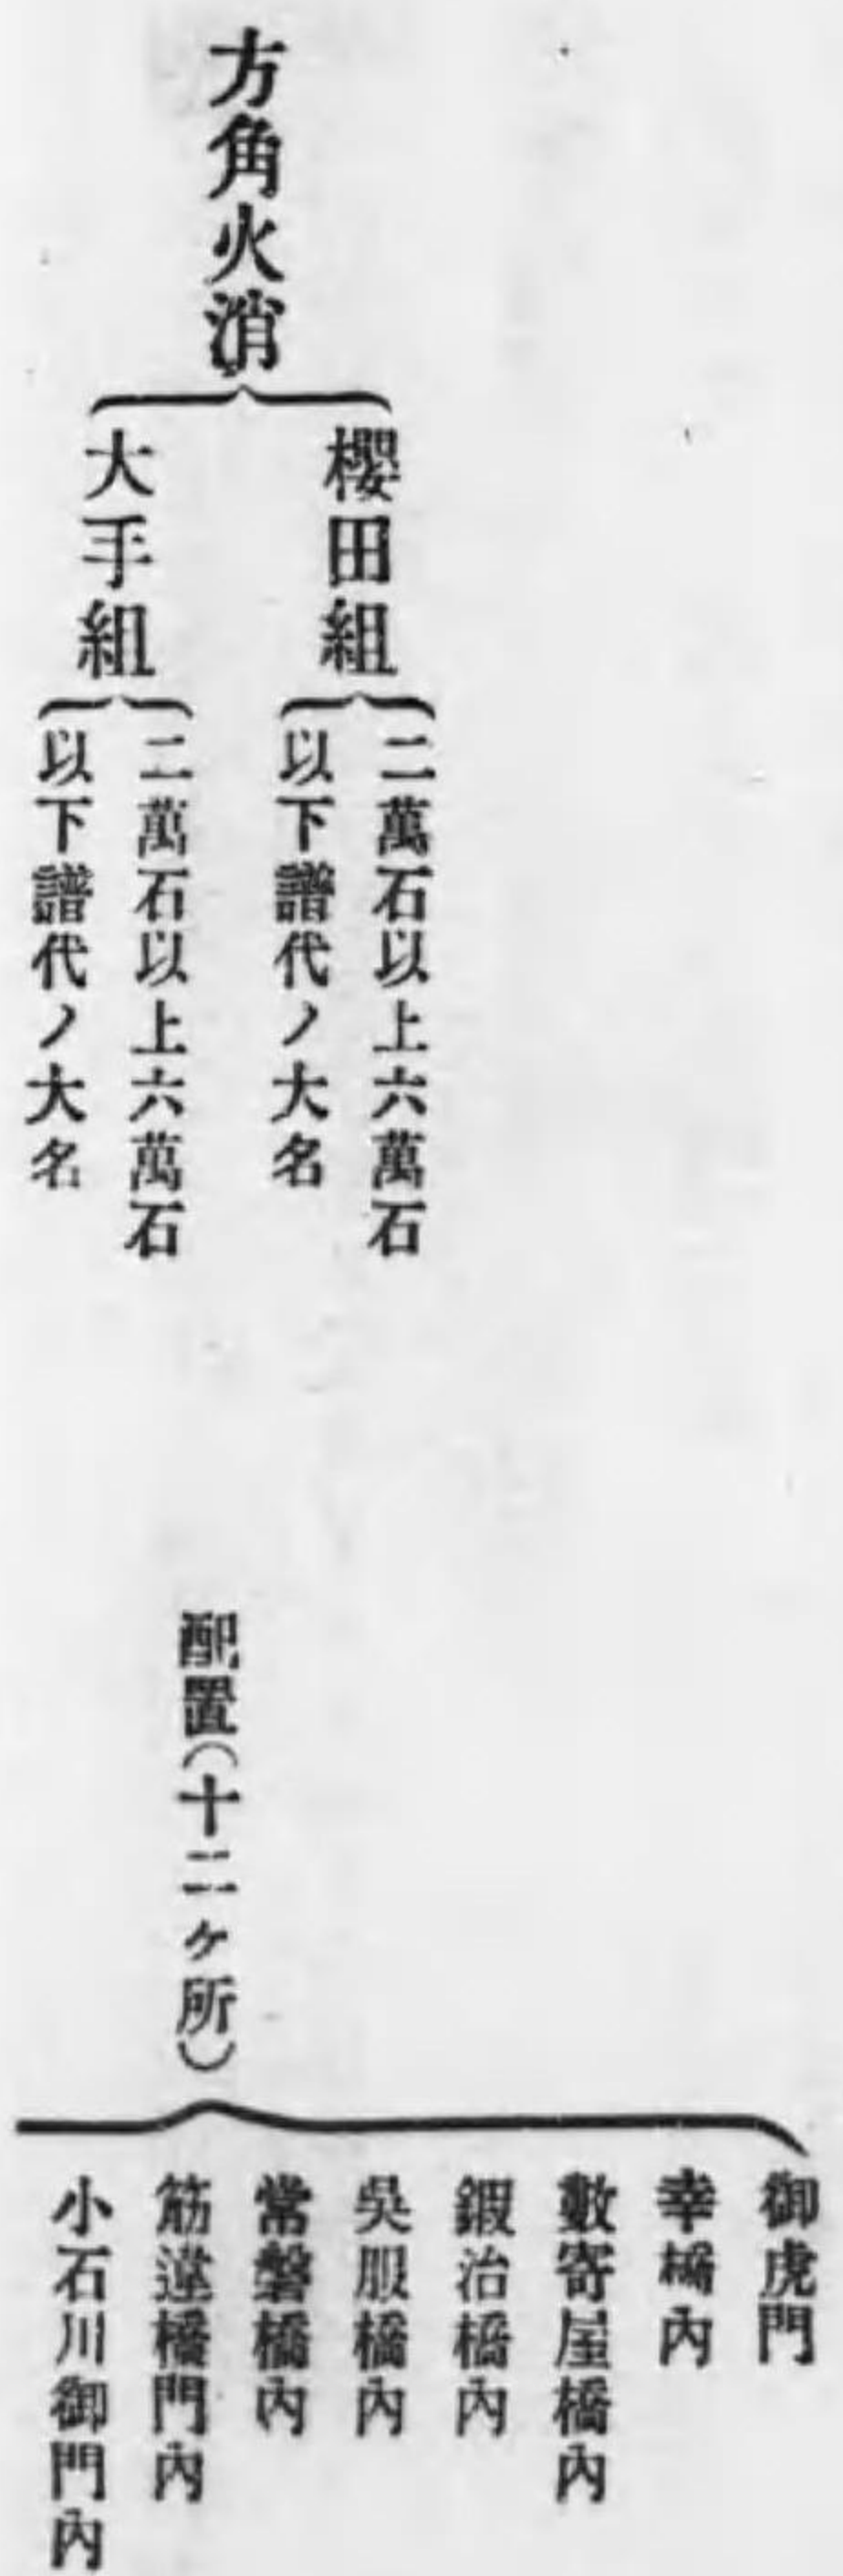 方角火消
櫻田組
二萬石以上六萬石
以下譜代ノ大名
大手組
二萬石以上六萬石
以下譜代ノ大名
配置(十二ヶ所)
御虎門
幸橋內
數寄屋橋內
鍜冶橋內
吳服橋內
常磐橋內
筋違橋門內
小石川御門內